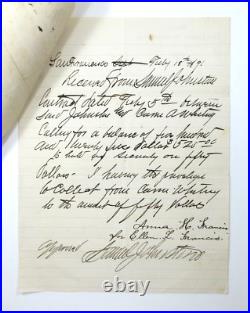 San Francisco Feby 10th 91
Received from Samuel Johnston
Contract dated Feby 5th between
Said Johnston & Carrie A Whitney
Calling for a balance of five hundred
and twenty five Dollars 525.00
to hold as security on fifty
Dollars - I having the privilege
to Collect from Carrie Whitney
to the amount of fifty Dollars
Anna H. Francis
for Ellen L. Francis.
Approved
Samuel Johnston